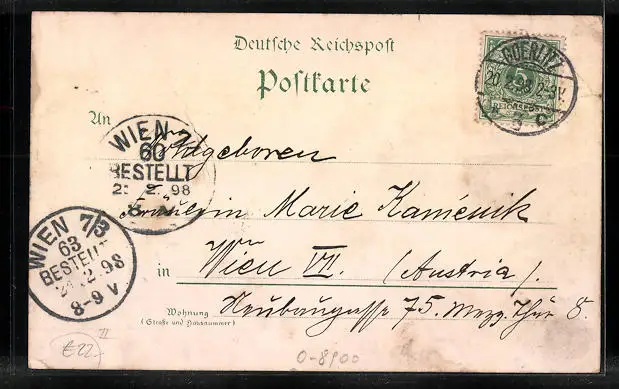 Deutsche Reichspost
Postkarte
GOERLITZ
5
REICHSPOST
20 98 2-3 V.
* 3 c
An
WIEN
60
BESTELLT
2. 98
8
Wohlgeboren
Fräulein Marie Kamenik
WIEN 7/3
63
BESTELLT
2.98
8-9 V
in Wien VII. (Austria).
Wohnung
(Straße und Hausnummer)
Neubaugasse 75. Mezz. Thür 8.
£22.-
II
0-8900